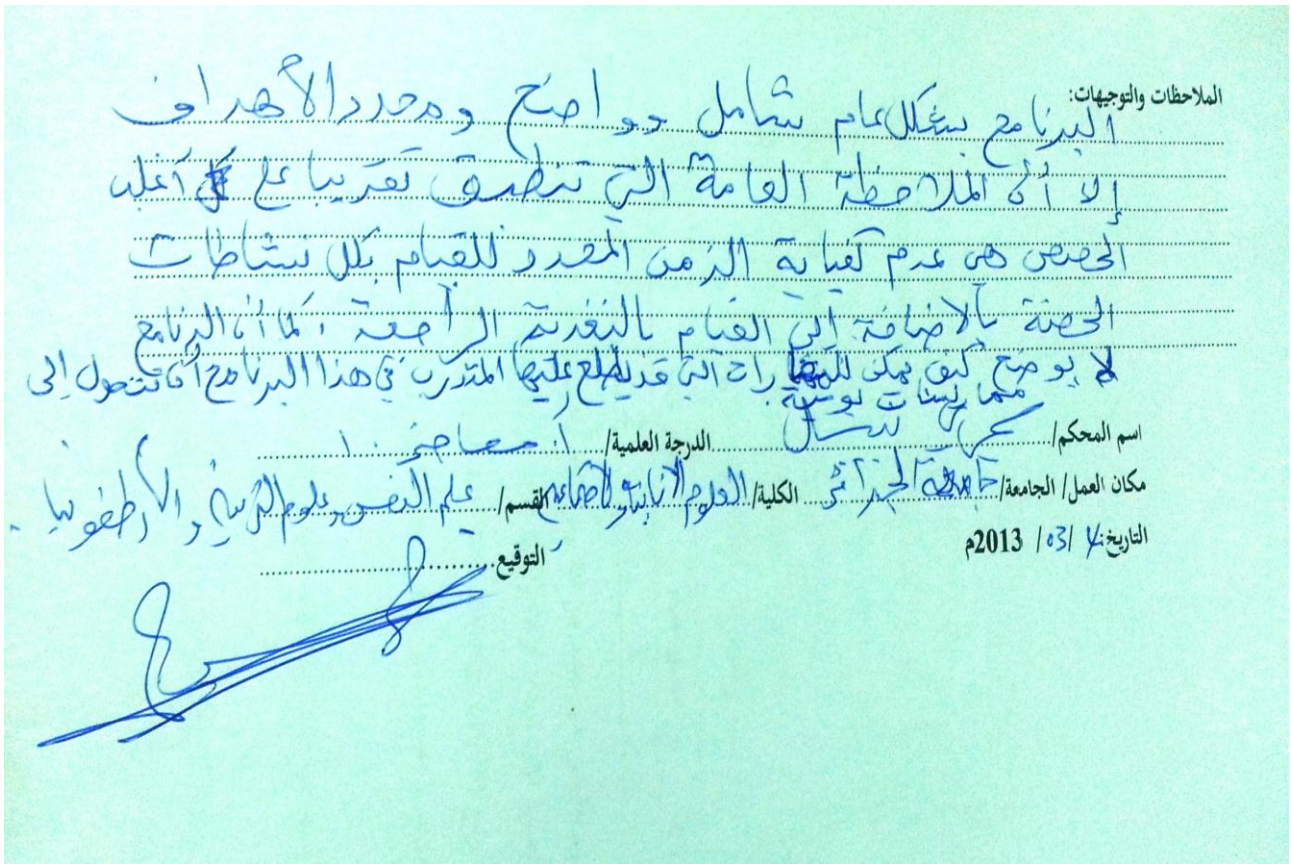 الملاحظات والتوجيهات:
البرنامج بشكل عام شامل وواضح ومحدد الأهداف
إلا أن الملاحظة العامة التي تنطبق تقريبا على أغلب
الحصص هي عدم كفاية الزمن المقدر للقيام بكل نشاطات
الحصة بالإضافة إلى القيام بالتغذية الراجعة، كما أن البرنامج
لا يوضح كيف يمكن للمهارات التي قد يطلع عليها المتدرب في هذا البرنامج أن تتحول إلى
ممارسات يومية
اسم المحكم/ الدرجة العلمية/ أ. محاضر أ.
مكان العمل/ الجامعة/ جامعة الجزائر الكلية/ العلوم الانسانية والاجتماعية القسم/ علم النفس وعلوم التربية والأرطفونيا.
التاريخ: 4/ 03/ 2013م التوقيع